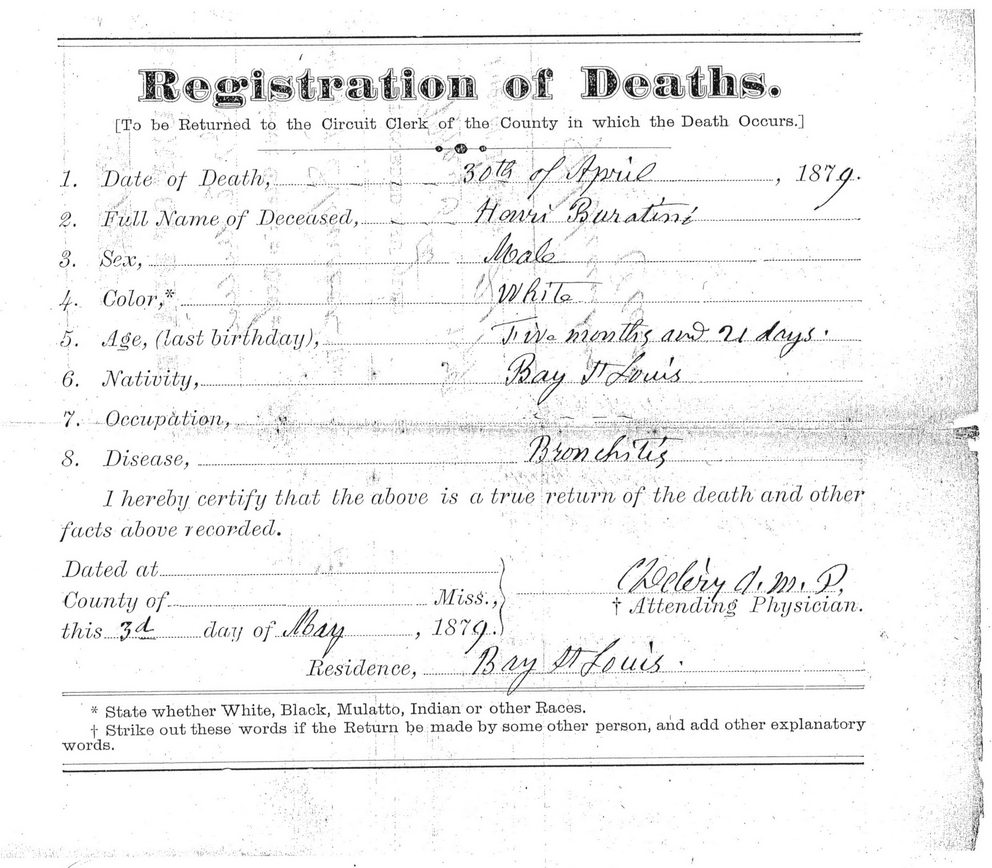 Registration of Deaths.
[To be Returned to the Circuit Clerk of the County in which the Death Occurs.]
1. Date of Death, 30th of April, 1879.
2. Full Name of Deceased, Henri Buratini
3. Sex, Male
4. Color,* White
5. Age, (last birthday), Five months and 21 days.
6. Nativity, Bay St Louis
7. Occupation,
8. Disease, Bronchitis
I hereby certify that the above is a true return of the death and other
facts above recorded.
Dated at
County of Miss.,
† Attending Physician.
this 3d day of May, 1879.
Residence, Bay St Louis.
* State whether White, Black, Mulatto, Indian or other Races.
† Strike out these words if the Return be made by some other person, and add other explanatory
words.